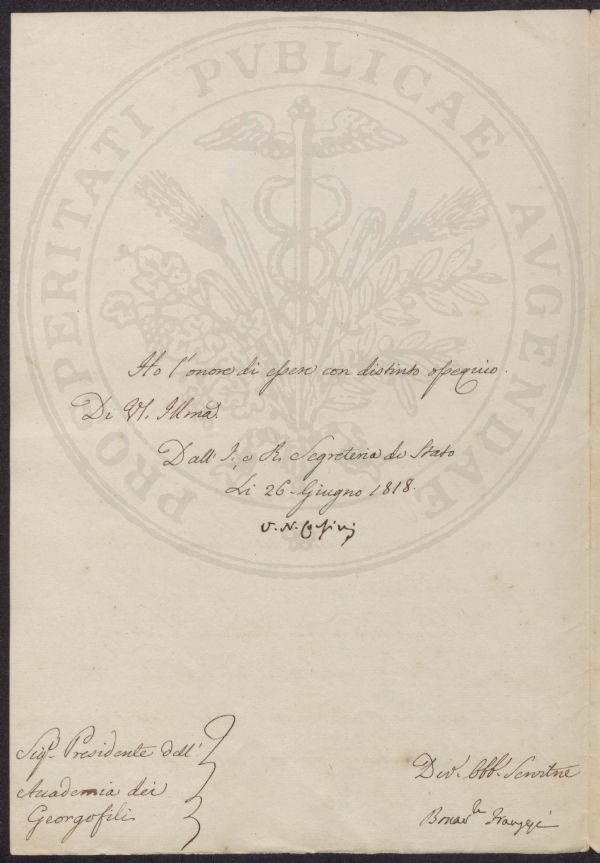 PROSPERITATI PVBLICAE AVGENDAE
Ho l'onore di essere con distinto ossequio.
Di VS. Illma.
Dall' I. e R. Segreteria di Stato
Li 26 Giugno 1818.
V. N. Corsini
Sigr. Presidente dell'
Accademia dei
Georgofili
Div. Obb. Servitne